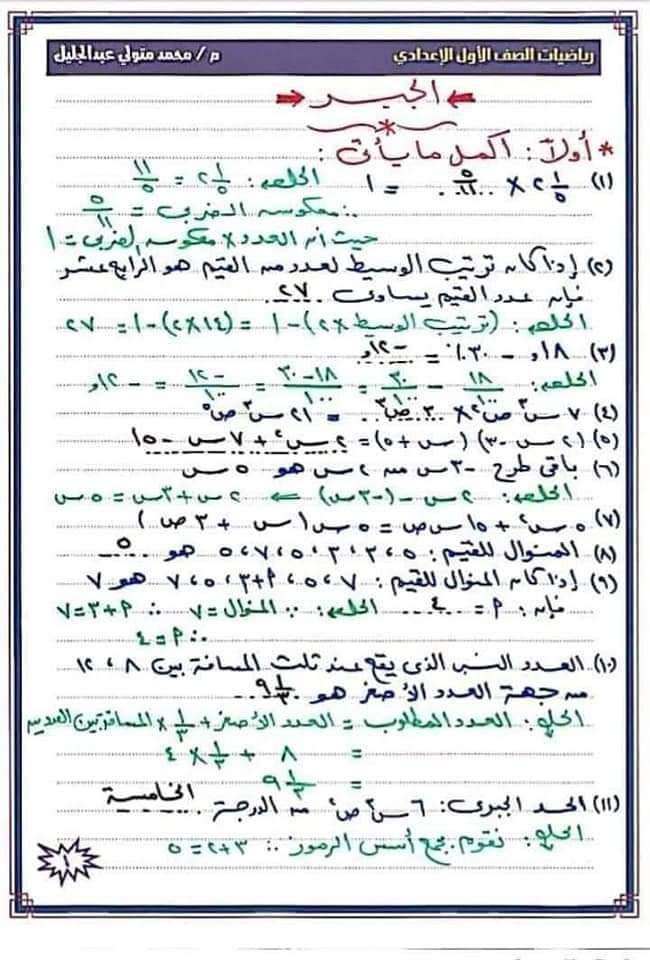 رياضيات الصف الأول الإعدادي م / محمد متولي عبدالجليل
الجبر
* أولاً : أكمل ما يأتى :
(١) ٢ ١/٥ × ٥/١١ = ١ الحل : ٢ ١/٥ = ١١/٥
∴ معكوسه الضربى = ٥/١١
حيث أن العدد × معكوسه الضربى = ١
(٢) إذا كان ترتيب الوسيط لعدد من القيم هو الرابع عشر
فإن عدد القيم يساوى ٢٧
الحل : (ترتيب الوسيط × ٢) − ١ = (١٤ × ٢) − ١ = ٢٧
(٣) ١٨و − ٣٠٪ = − ١٢و
الحل : ١٨/١٠٠ − ٣٠/١٠٠ = ١٨−٣٠/١٠٠ = −١٢/١٠٠ = − ١٢و
(٤) ٧ س٣ ص٢ × ٣ ص٣ = ٢١ س٣ ص٥
(٥) (٢ س − ٣) (س + ٥) = ٢ س٢ + ٧ س − ١٥
(٦) باقى طرح −٣ س من ٢ س هو ٥ س
الحل : ٢ س − (−٣ س) ⇐ ٢ س + ٣ س = ٥ س
(٧) ٥ س٢ + ١٥ س ص = ٥ س (س + ٣ ص)
(٨) المنوال للقيم : ٥ ، ٢ ، ٣ ، ٥ ، ٧ ، ٥ هو ٥
(٩) إذا كان المنوال للقيم : ٧ ، ٥ ، ٩ + ٣ ، ٥ ، ٧ هو ٧
فإن : ٩ = ٤ الحل : ∵ المنوال = ٧ ∴ ٩ + ٣ = ٧
∴ ٩ = ٤
(١٠) العدد النسبى الذى يقع عند ثلث المسافة بين ٨ ، ١٢
من جهة العدد الأصغر هو ٩ ١/٣
الحل : العدد المطلوب = العدد الأصغر + ١/٣ × المسافة بين العددين
= ٨ + ١/٣ × ٤
= ٩ ١/٣
(١١) الحد الجبرى : ٦ س٣ ص٢ من الدرجة الخامسة
الحل : نقوم بجمع أسس الرموز ∴ ٣ + ٢ = ٥
١